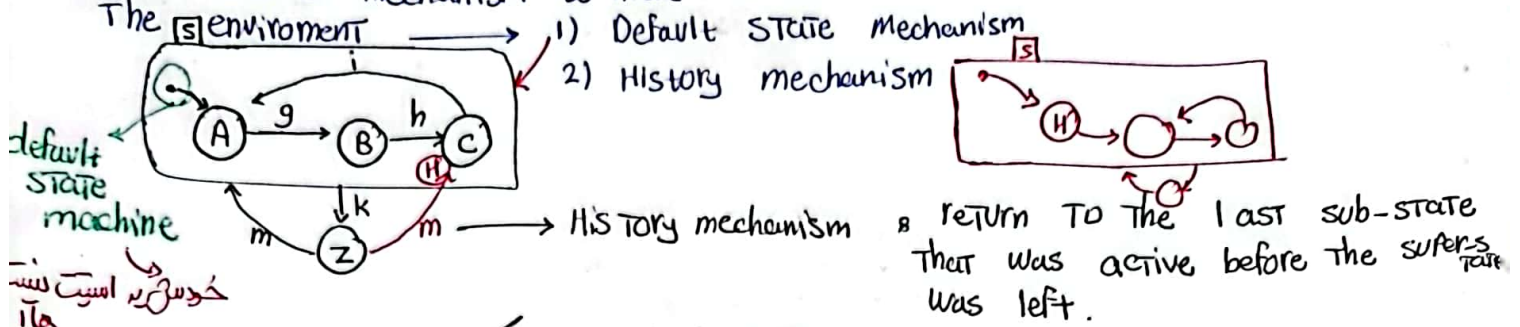 The enviroment
1) Default State Mechanism
2) History mechanism
S
S
A
g
B
h
C
i
H
H
default
state
machine
k
m
m
Z
History mechanism : return to the last sub-state
that was active before the super-state
was left.